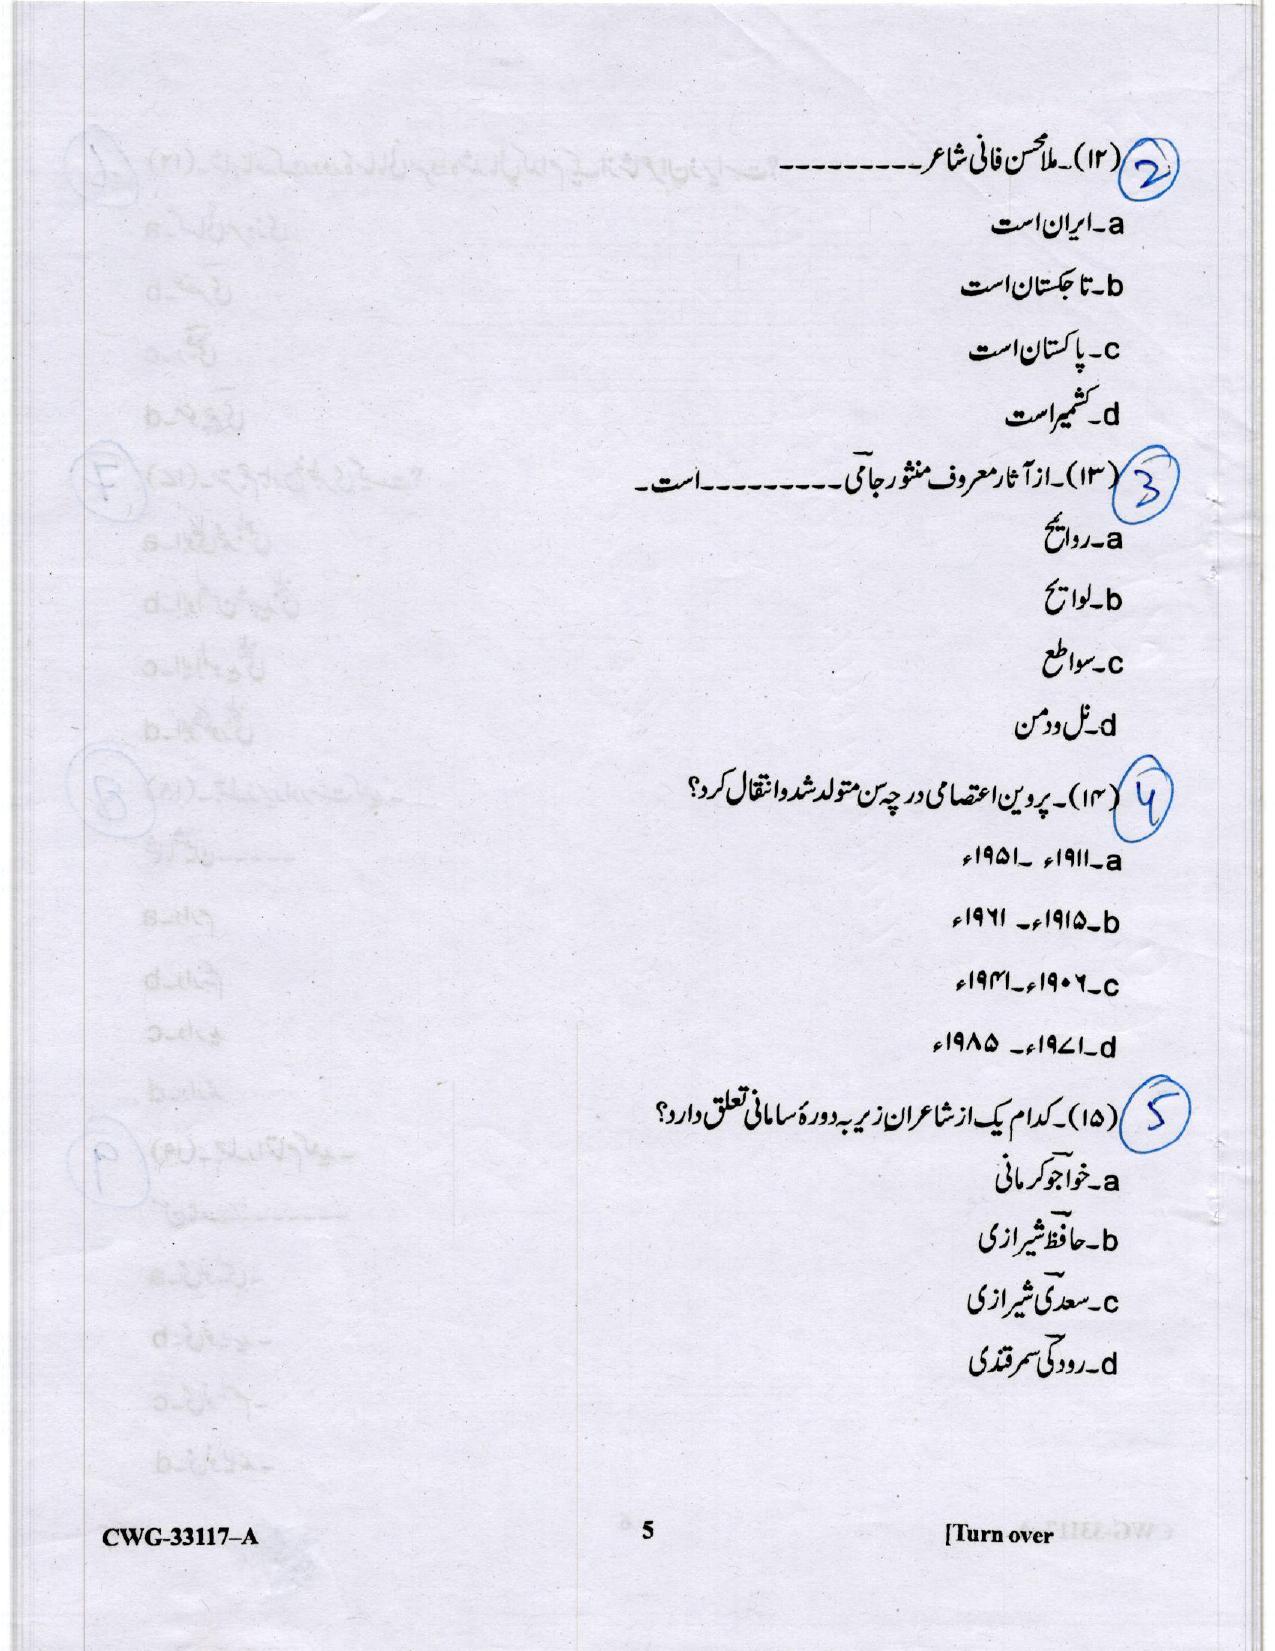 2 (۱۲)۔ ملا محسن فانی شاعر ---------
a۔ ایران است
b۔ تاجکستان است
c۔ پاکستان است
d۔ کشمیر است
3 (۱۳)۔ از آثار معروف منثور جامی --------- است۔
a۔ روایح
b۔ لوایح
c۔ سواطع
d۔ نل و دمن
4 (۱۴)۔ پروین اعتصامی در چہ سن متولد شد و انتقال کرد؟
a۔ ۱۹۱۱ء ۔ ۱۹۵۱ء
b۔ ۱۹۱۵ء۔ ۱۹۶۱ء
c۔ ۱۹۰۶ء۔ ۱۹۴۱ء
d۔ ۱۹۷۱ء۔ ۱۹۸۵ء
5 (۱۵)۔ کدام یک از شاعران زیر بہ دورۂ سامانی تعلق دارد؟
a۔ خواجو کرمانی
b۔ حافظ شیرازی
c۔ سعدی شیرازی
d۔ رودکی سمرقندی
CWG-33117–A 5 [Turn over